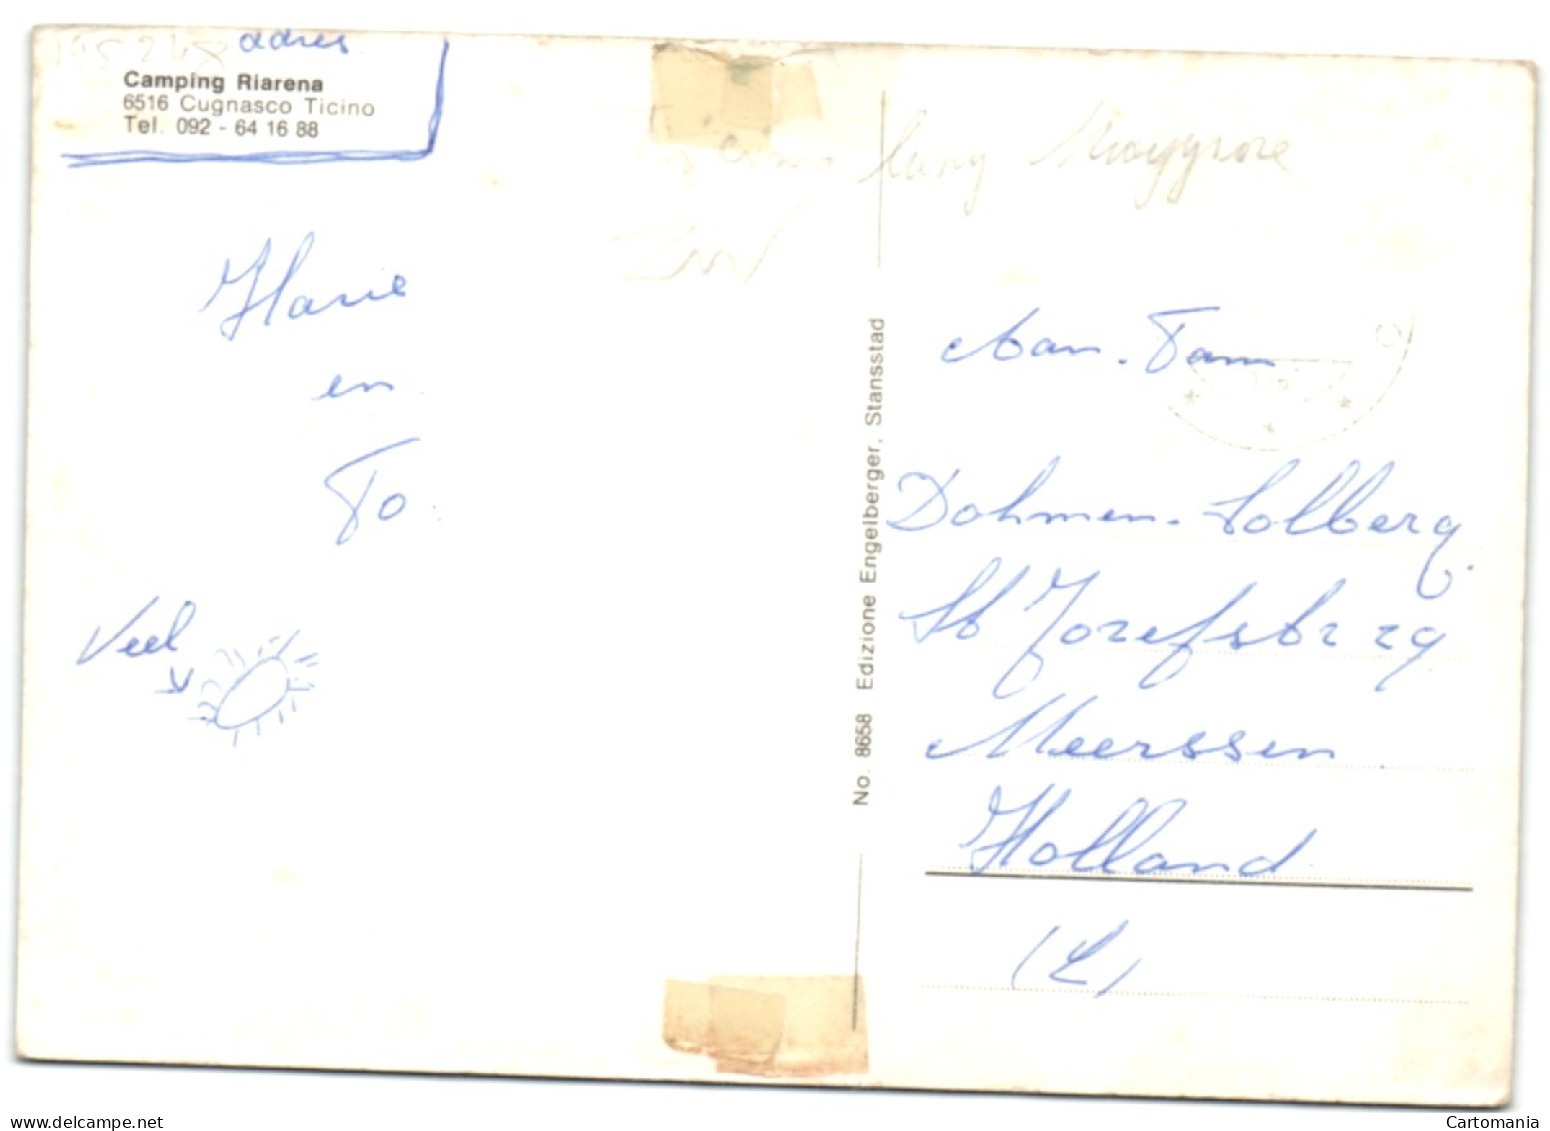 adres
Camping Riarena
6516 Cugnasco Ticino
Tel. 092 - 64 16 88
Harie
en
To
Veel
No. 8658 Edizione Engelberger, Stansstad
Aan. Fam
Dohmen. Solberg.
St Jozefstr 29
Meerssen
Holland
(L)
www.delcampe.net
Cartomania